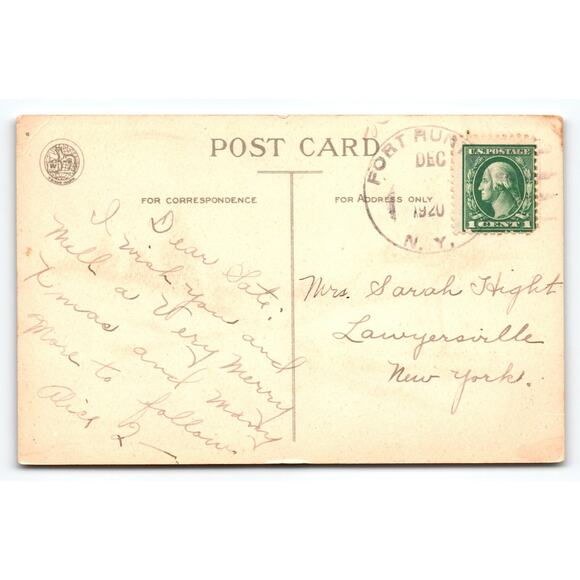 POST CARD
FOR CORRESPONDENCE
FOR ADDRESS ONLY
FORT HUN
DEC
1920
N. Y.
U.S. POSTAGE
1 CENT 1
Dear Sate:
I wish you and
Mell a Very Merry
Xmas and many
More to follow.
Alice
Mrs. Sarah Hight
Lawyersville
New York.